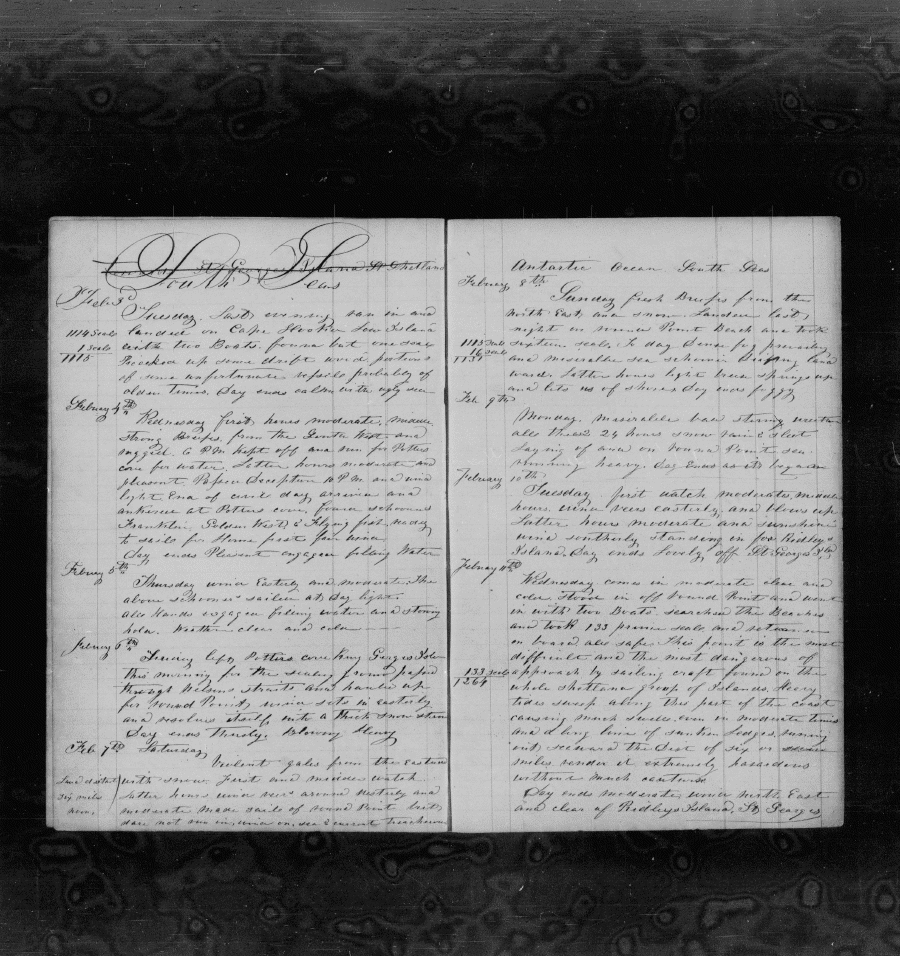 South Seas
Feb 3d
Tuesday. Last evening ran in and
1114 seals landed on Cape Island
1 seals with two Boats, found but one seal
1115 Picked up some drift wood, portions
of some unfortunate vessels probably of
olden times. Day ends calm with ugly sea
Febuary 4th
Wednesday first hours moderate, middle
strong Breezes, from the South West and
rugged. 6 P.M. kept off and run for Potters
cove for water. Latter hours moderate and
pleasant. Passed Deception 10 P.M. and wind
light End of civil day, arrived and
anchored at Potters cove, found schooners
Franklin, Golden West, & Flying fish ready
to sail for Home first fair wind
Day ends Pleasant engaged filling Water
Febuay 5th
Thursday wind Easterly and moderate. The
above schooners sailed at day light.
All Hands engaged filling water and stowing
hold. Weather clear and cold
Febuay 6th
Having left Potters cove King Georges Isle
this morning for the sealing ground passed
through Nelsons straits and hauled up
for round Point, wind sets in easterly
and resolves itself into a thick snow storm
Day ends thusly. Blowing Heavy
Feb 7th Saturday
Violent gales from the eastward
with snow. First and middle watch
six miles latter hours wind veers around Westerly and
moderate made sails of round Point but
dare not run in, wind on, sea & current treacherous
Antartic Ocean South Seas
Febuary 8th
Sunday fresh Breezes from the
North East and snow. Landed last
night on round Point Beach and took
1115 seals sixteen seals, To day Dense fog prevailing
16 seals and miserable sea heaving in land
1131 ward. Latter hours light breeze springs up
and lets us of shore Day ends foggy
Feb 9th
Monday. miserable bad storing weather
all these 24 hours snow rain & sleet
Laying of and on round Point sea
running heavy. Day Ends as it began
Febuary 10th
Tuesday first watch moderate, middle
hours wind veers easterly and blows up
Latter hours moderate and sunshine
wind southerly standing in for Ridleys
Island, Day ends Lovely off St Georges Isld
Febuay 11th
Wednesday comes in moderate clear and
cold. Stood in off round Point and went
in with two Boats searched the Beaches
and took 133 prime seals and return
on board all safe. This point is the most
difficult and the most dangerous of
133 seals approach by sailing craft found on the
1264 whole shetland group of Islands. Heavy
tides sweep along this part of the coast
causing much swell, even in moderate times
and a long line of sunken ledges, running
out seaward the dist of six or
miles render it extremely hazardous
without much caution
Day ends moderate wind North East
and clear of Ridleys Island, St Georges